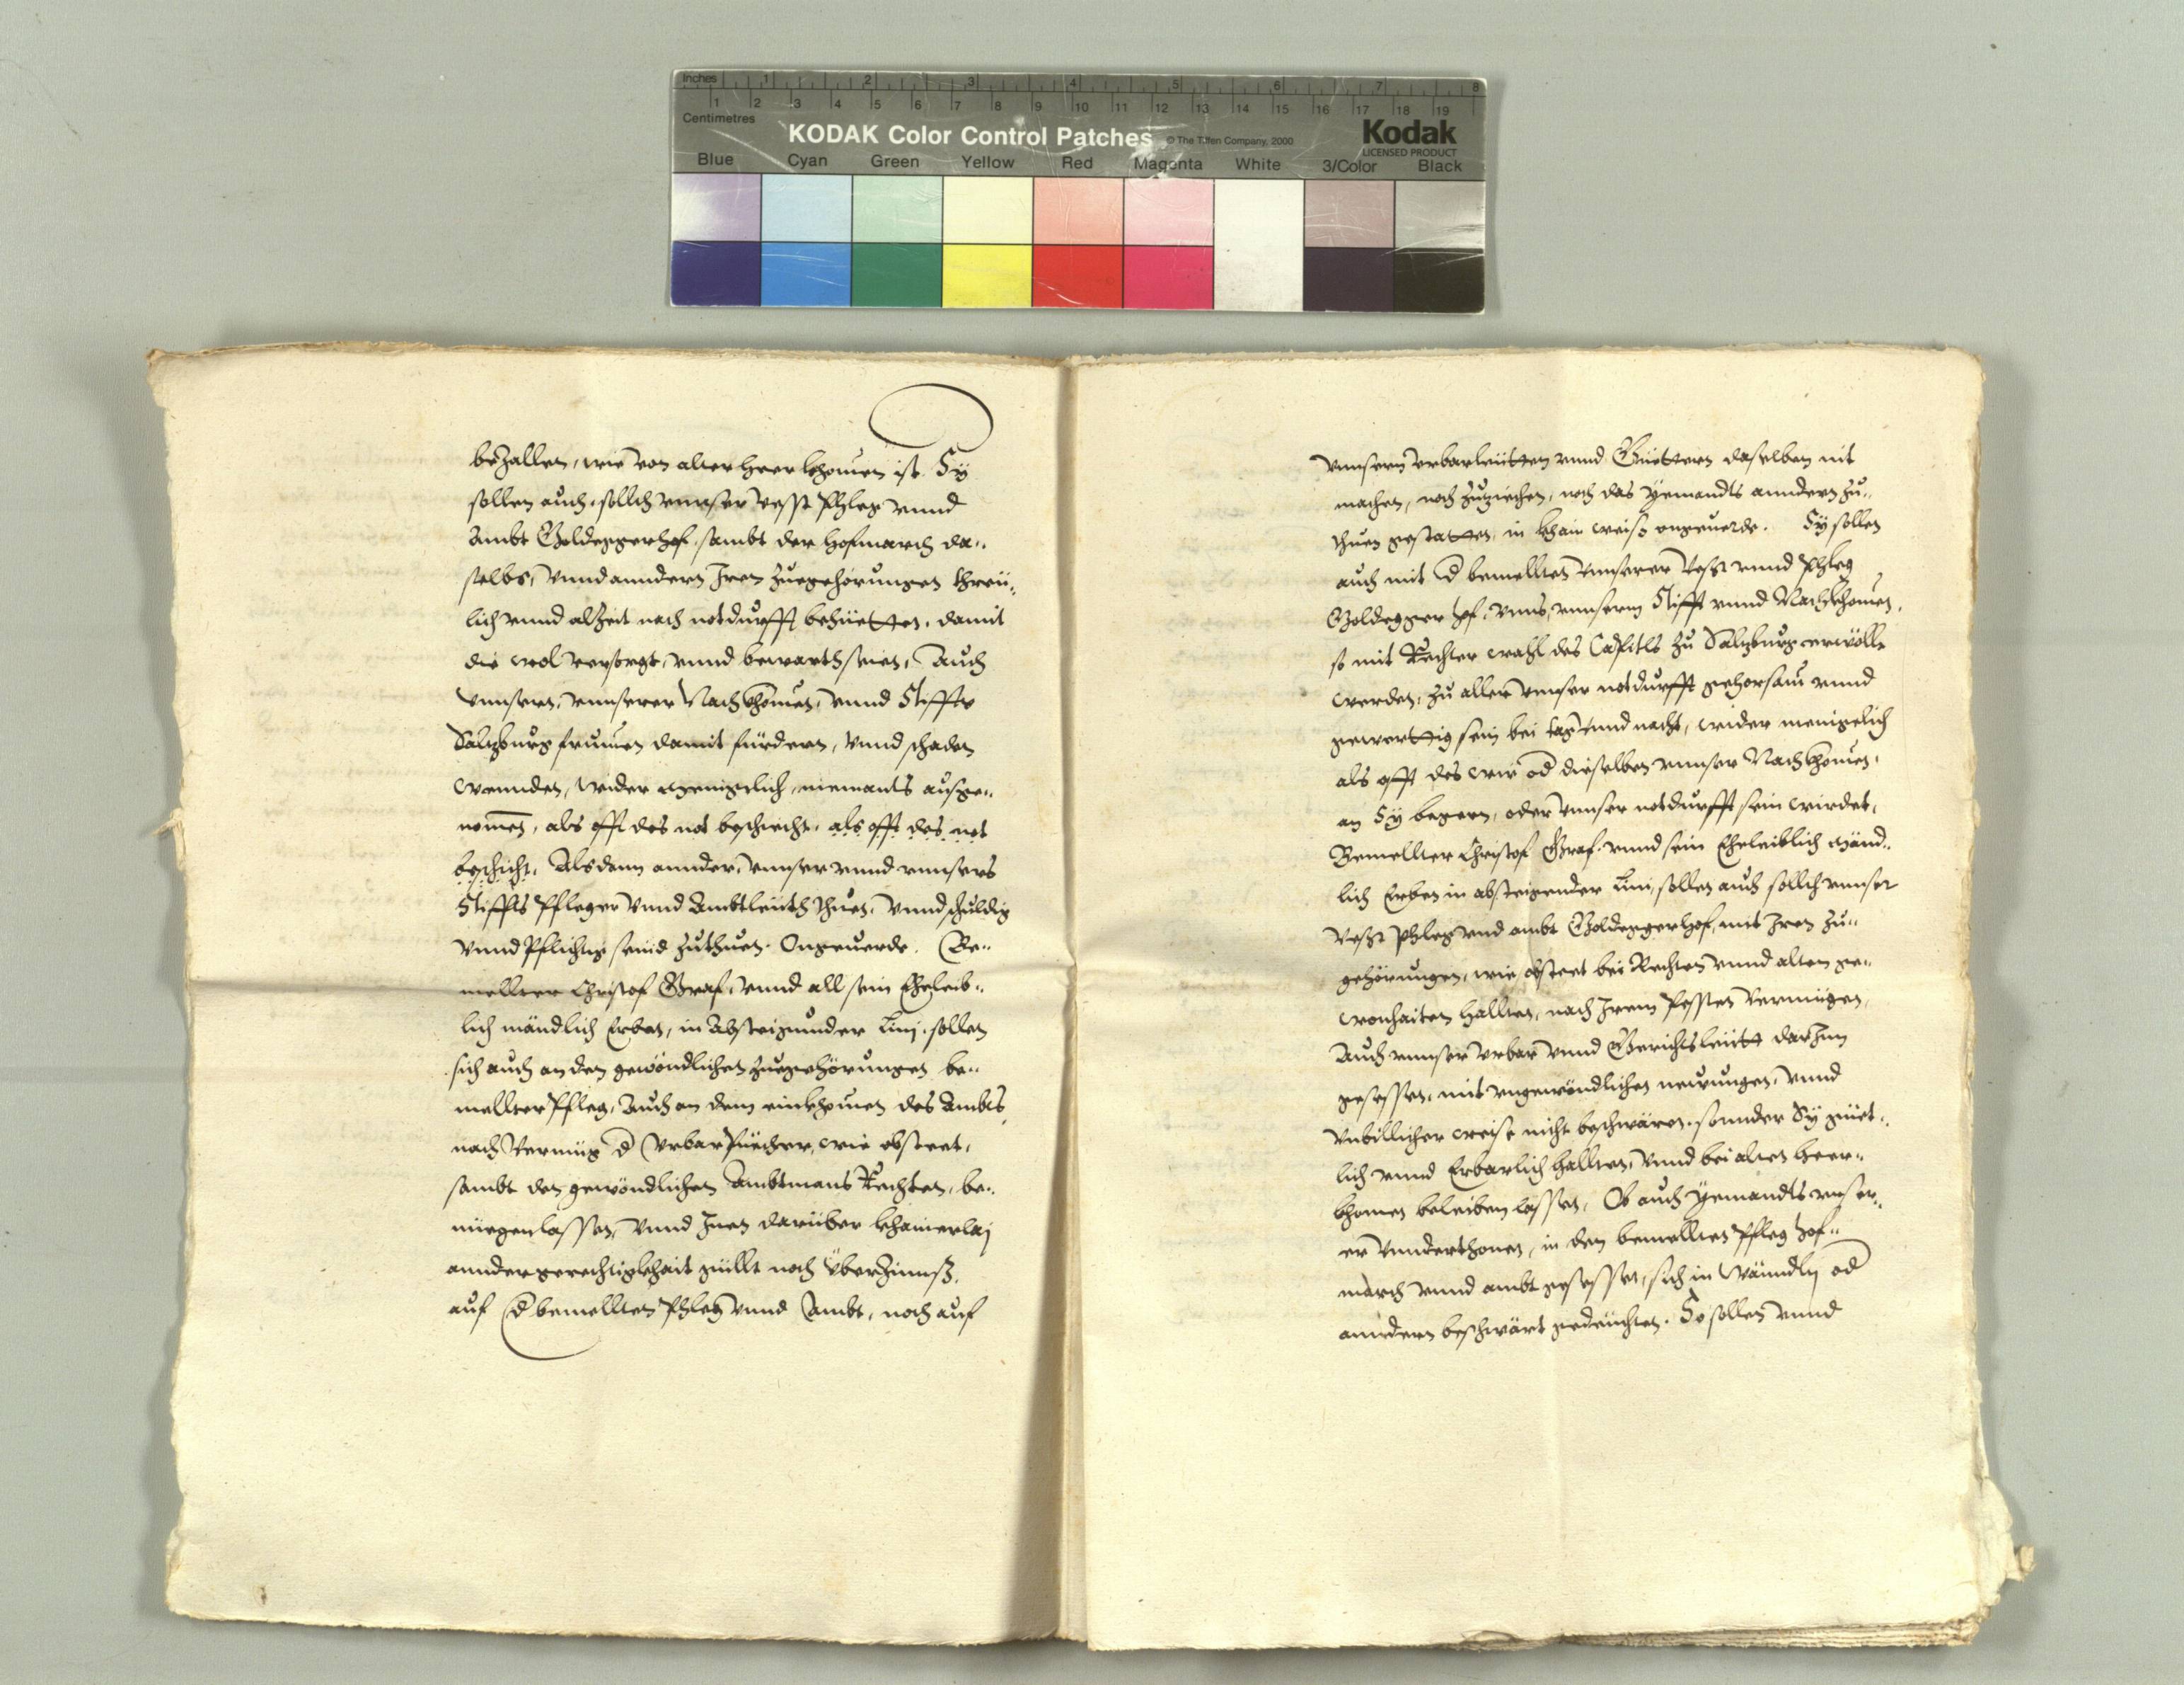 Inches 1 2 3 4 5 6 7 8
1 2 3 4 5 6 7 8 9 10 11 12 13 14 15 16 17 18 19
Centimetres
KODAK Color Control Patches © The Tiffen Company, 2000 Kodak
LICENSED PRODUCT
Blue Cyan Green Yellow Red Magenta White 3/Color Black
bezallen, wie von alter heer khomen ist. Sÿ
sollen auch, sollch vnnser Vesst Phleg vnnd
Ambt Goldeggerhof, sambt der Hofmarch da„
selbs, Vnnd anndern Jren zuegehörungen threu„
lich vnnd alzeit nach notdurfft behüetten, damit
die wol versorgt, vnnd bewarth seien, Auch
Vnnsern, vnnserer Nachkhomen, vnnd Stiffts
Saltzburg frumen damit fürdern, Vnnd schaden
Wennden, wider menigelich, niemants ausge„
nomen, als offt des not beschiecht, als offt des not
beschicht, Als dann annder, vnnser vnnd vnnsers
Stiffts Pfleger Vnnd Ambtleuth thuen, Vnnd schuldig
Vnnd Pflichtig seind zuthuen. Ongeuerde. Be„
mellter Christof Graf, vnnd all sein Eheleib„
lich mändlich Erben, in Absteigunder Linj, sollen
sich auch an den gewöndlichen zuegehörungen be„
mellter Pfleg, Auch an dem einkhomen des Ambts
nach Vermüg d Vrbar Püecher, wie obsteet,
sambt den gewöndlichen Ambtmans Rechten, be„
nüegen lassen, Vnnd Jnen darüber khainerlaj
annder gerechtigkhait güllt noch Überzinnß,
auf d bemellten Phleg Vnnd Ambt, noch auf
Vnnsern Vrbarleütten vnnd Güettern daselben nit
machen, noch zuziechen, noch das Yemandts anndern zu„
thuen gestatten, in khain weiß ongeuerde. Sÿ sollen
auch mit d bemellten Vnnserer Vesst vnnd Phleg
Goldegger hof, Vnns, vnnserm Stifft vnnd Nachkhomen,
so mit Rechter wahl des Capitls zu Saltzburg erwöllt
werden, zu aller Vnnser notdurfft gehorsam vnnd
gewerttig sein bei tag vnnd nacht, wider menigelich
als offt des wir od dieselben vnnser Nachkhomen,
an Sÿ begern, oder Vnnser notdurfft sein wirdet,
Bemellter Christof Graf, vnnd sein Eheleiblich mänd„
lich Erben in absteigender Lini, sollen auch sollch vnnser
Vesst phleg vnd ambt Goldeggerhof, mit Jren zu„
gehörungen, wie obsteet bei Rechten vnnd alten ge„
wonhaiten hallten, nach Jrem Pessten Vermügen,
Auch vnnser Vrbar Vnnd Gerichtsleütt darzum
gesessen, mit vngewöndlichen newungen, Vnnd
Vnbillicher weise nicht beschwären, sonnder Sÿ güet„
lich vnnd Erbarlich hallten, Vnnd bei alten heer„
khomen beleiben lassen, Ob auch Yemandts vnser„
er Vnnderthonen, in den bemellten Pfleg Hof„
march vnnd ambt gesessen, sich in Wänndlj od
anndern beschwärt gedeuchten. So sollen Vnnd